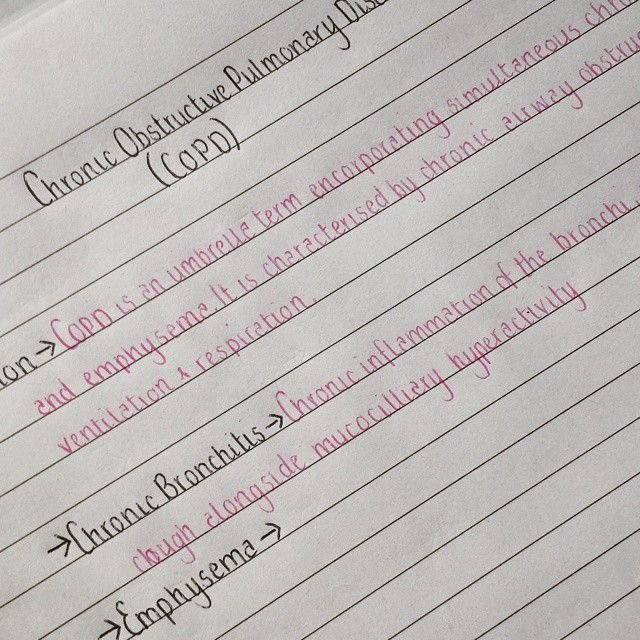 Chronic Obstructive Pulmonary
(COPD)
COPD is an umbrella term encorporating simultaneous
and emphysema. It is characterised by chronic airway
ventilation & respiration.
→ Chronic Bronchitis → Chronic inflammation of the bronchi,
clough alongside mucocilliary hyperactivity
→ Emphysema →